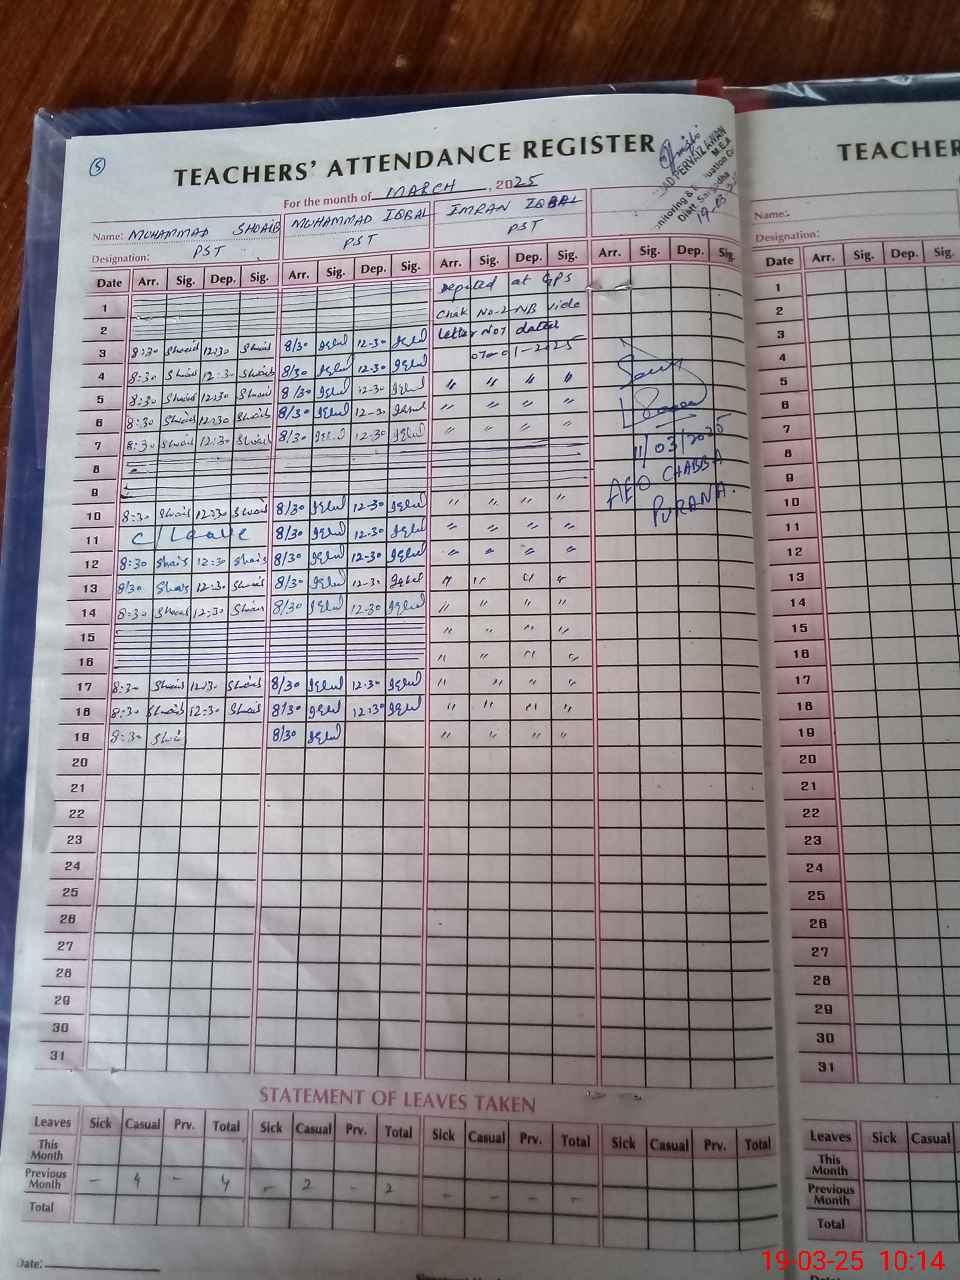 5
TEACHERS' ATTENDANCE REGISTER
For the month of MARCH, 2025
19-03-2
Name: MUHAMMAD SHOAIB MUHAMMAD IQBAL IMRAN IQBAL
Designation: PST PST PST
Date Arr. Sig. Dep. Sig. Arr. Sig. Dep. Sig. Arr. Sig. Dep. Sig. Arr. Sig. Dep. Sig.
1 Deputed at GPS
2 Chak No-2-NB vide
3 8:30 Shoaib 12:30 Shoaib 8/30 Iqbal 12-30 Iqbal letter No 7 dated
4 8:30 Shoaib 12:30 Shoaib 8/30 Iqbal 12-30 Iqbal 07-01-2025
5 8:30 Shoaib 12:30 Shoaib 8/30 Iqbal 12-30 Iqbal " " " "
6 8:30 Shoaib 12:30 Shoaib 8/30 Iqbal 12-30 Iqbal " " " "
7 8:30 Shoaib 12:30 Shoaib 8/30 Iqbal 12-30 Iqbal " " " "
11/03/2025
8
AEO CHABBA
9
PURANA.
10 8:30 Shoaib 12:30 Shoaib 8/30 Iqbal 12-30 Iqbal " " " "
11 C/Leave 8/30 Iqbal 12-30 Iqbal " " " "
12 8:30 Shoaib 12:30 Shoaib 8/30 Iqbal 12-30 Iqbal " " " "
13 8/30 Shoaib 12:30 Shoaib 8/30 Iqbal 12-30 Iqbal " " " "
14 8:30 Shoaib 12:30 Shoaib 8/30 Iqbal 12-30 Iqbal " " " "
15 " " " "
16 " " " "
17 8:30 Shoaib 12:30 Shoaib 8/30 Iqbal 12-30 Iqbal " " " "
18 8:30 Shoaib 12:30 Shoaib 8/30 Iqbal 12:30 Iqbal " " " "
19 8:30 8/30 Iqbal " " " "
20
21
22
23
24
25
26
27
28
29
30
31
STATEMENT OF LEAVES TAKEN
Leaves Sick Casual Prv. Total Sick Casual Prv. Total Sick Casual Prv. Total Sick Casual Prv. Total
This Month
Previous Month - 4 - 4 - 2 - 2 - - - -
Total
Date:
TEACHER
Name:
Designation:
Date Arr. Sig. Dep. Sig.
1
2
3
4
5
6
7
8
9
10
11
12
13
14
15
16
17
18
19
20
21
22
23
24
25
26
27
28
29
30
31
Leaves Sick Casual
This Month
Previous Month
Total
19-03-25 10:14